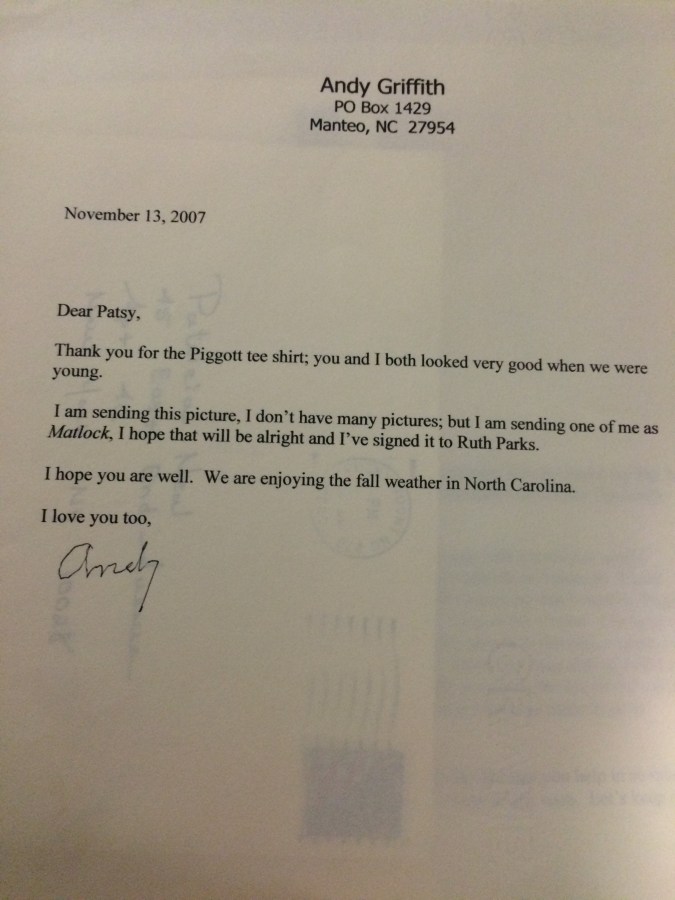 Andy Griffith
PO Box 1429
Manteo, NC 27954
November 13, 2007
Dear Patsy,
Thank you for the Piggott tee shirt; you and I both looked very good when we were
young.
I am sending this picture, I don't have many pictures; but I am sending one of me as
Matlock, I hope that will be alright and I've signed it to Ruth Parks.
I hope you are well. We are enjoying the fall weather in North Carolina.
I love you too,
Andy